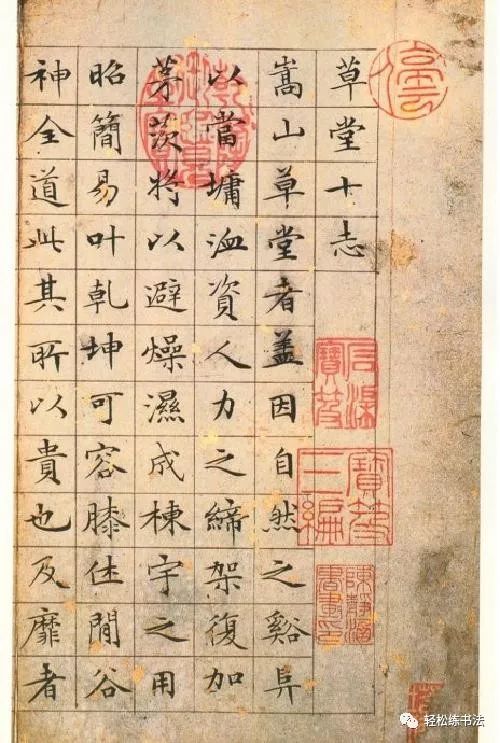 草堂十志
嵩山草堂者盖因自然之谿阜
以當墉洫資人力之締架復加
茅茨将以避燥濕成棟宇之用
昭簡易叶乾坤可容膝休閒谷
神全道此其所以貴也及靡者
石渠寶笈
寶笈三編
轻松练书法